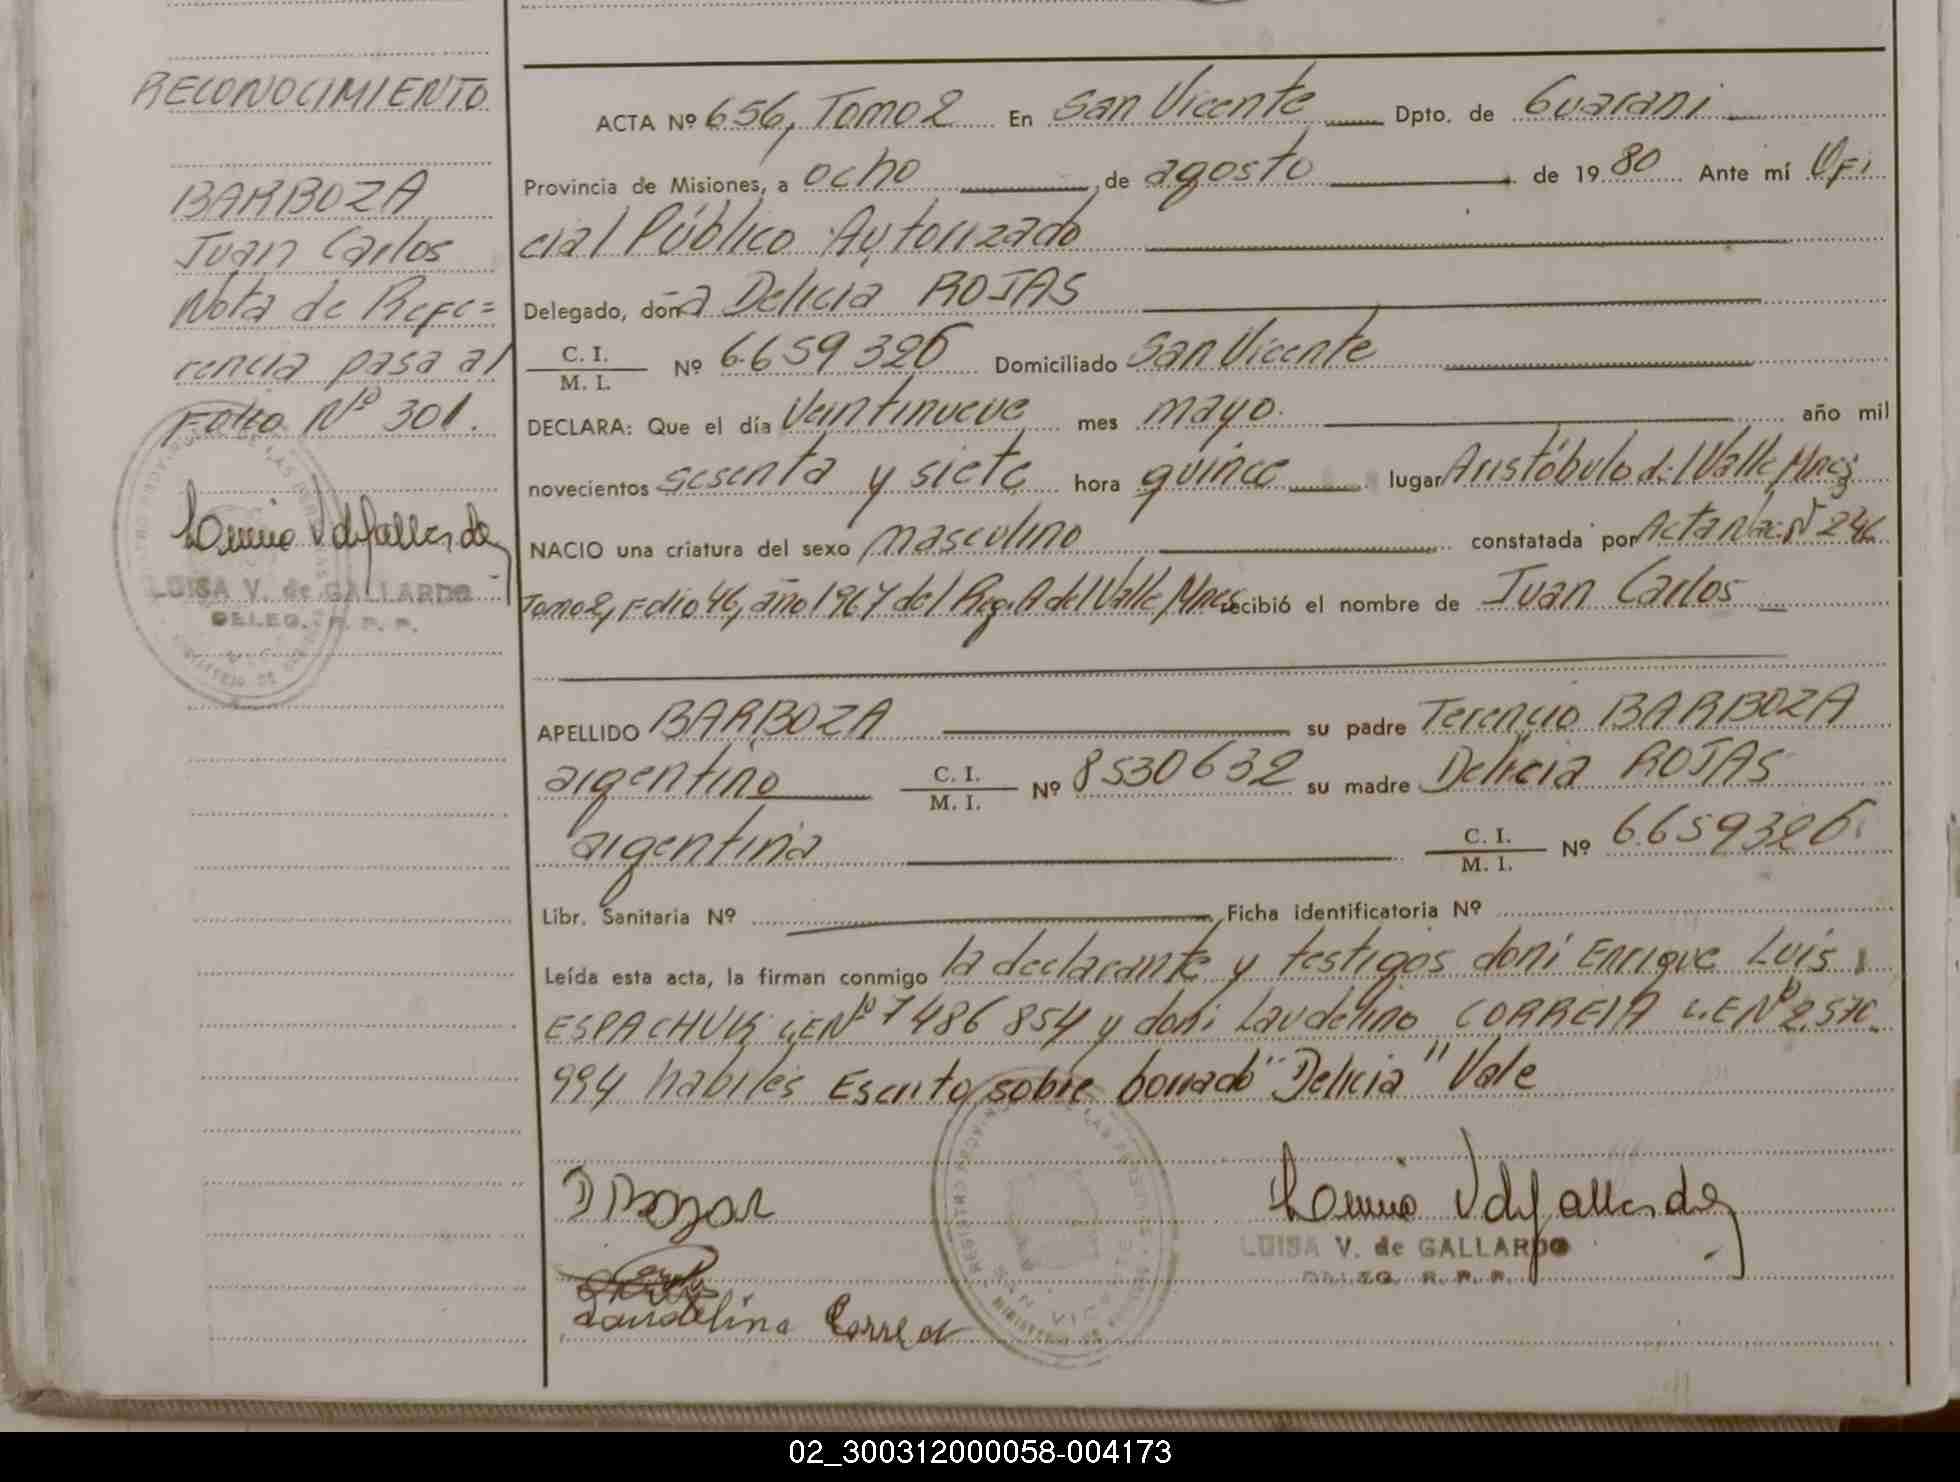 RECONOCIMIENTO
BARBOZA
Juan Carlos
Nota de Refe=
rencia pasa al
Folio Nº 301.
LUISA V. de GALLARDO
DELEG. R. P. P.
ACTA Nº 656, Tomo 2 En San Vicente Dpto. de Guarani
Provincia de Misiones, a ocho de agosto de 1980 Ante mí Ofi
cial Público Autorizado
Delegado, doña Delicia ROJAS
C. I. / M. I. Nº 6.659326 Domiciliado San Vicente
DECLARA: Que el día Veintinueve mes mayo. año mil
novecientos sesenta y siete hora quince lugar Aristóbulo del Valle, Mnes
NACIO una criatura del sexo masculino constatada por Acta Nac. Nº 246
Tomo 2, Folio 46, año 1967 del Reg. A del Valle, Mnes recibió el nombre de Juan Carlos
APELLIDO BARBOZA su padre Terencio BARBOZA
argentino C. I. / M. I. Nº 8530632 su madre Delicia ROJAS
argentina C. I. / M. I. Nº 6.659326
Libr. Sanitaria Nº Ficha identificatoria Nº
Leída esta acta, la firman conmigo la declarante y testigos don: Enrique Luis
ESPACHUK L.E Nº 7486854 y don: Laudelino CORREIA L.E Nº 2.570.
994 habiles Escrito sobre borrado "Delicia" Vale
LUISA V. de GALLARDO
DELEG. R. P. P.
Laudelino Correa
SAN VICENTE
02_300312000058-004173